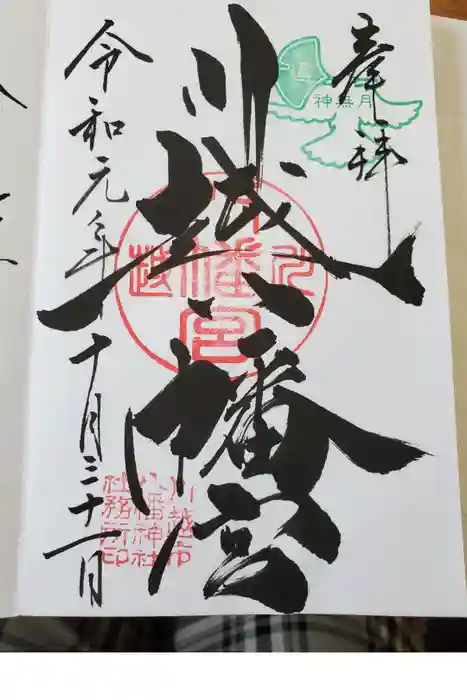 奉拝
神無月
川越八幡宮
令和元年十月三十一日
川越市
八幡神社
社務所印